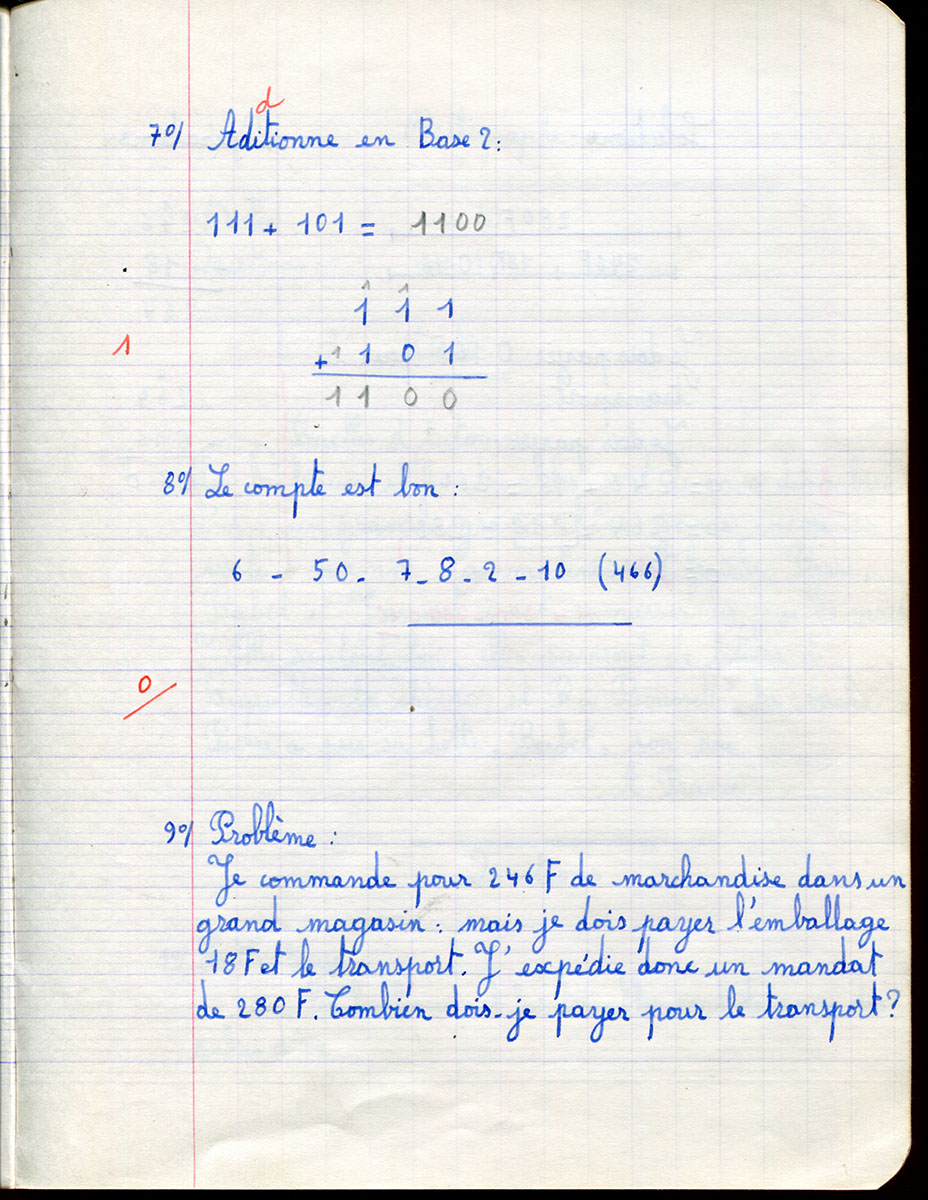 d
7°/ Aditionne en Base 2:
111 + 101 = 1100
1 1
1 1 1
1
+ 1 1 0 1
1 1 0 0
8°/ Le compte est bon :
6 - 50 - 7 - 8 - 2 - 10 (466)
0
9°/ Problème :
Je commande pour 246 F de marchandise dans un
grand magasin : mais je dois payer l'emballage
18 F et le transport. J' expédie donc un mandat
de 280 F. Combien dois-je payer pour le transport?